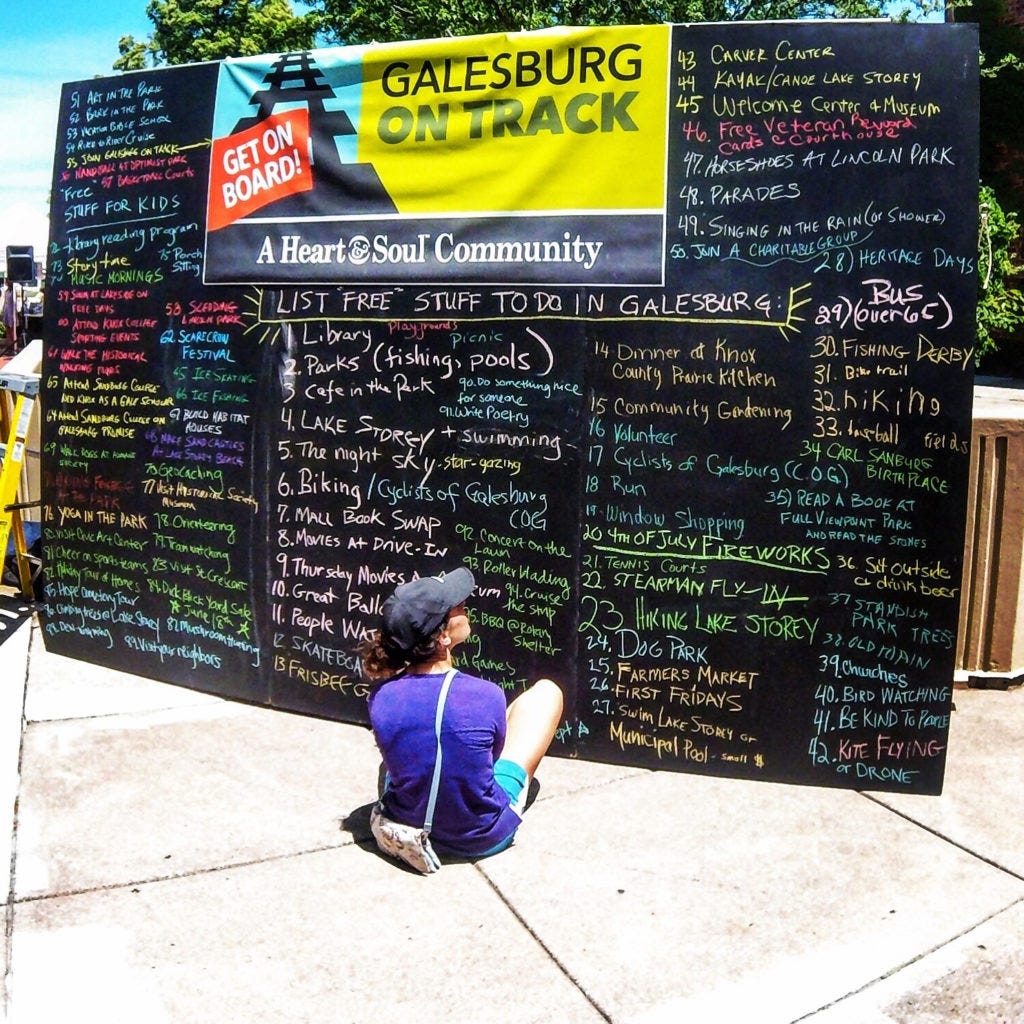 GALESBURG
ON TRACK
GET ON
BOARD!
A Heart & Soul Community
LIST "FREE" STUFF TO DO IN GALESBURG:
51 ART IN THE PARK
52 BARK IN THE PARK
53 VACATION BIBLE SCHOOL
54 RIVER CRUISE
55 JOIN GALESBURG ON TRACK
56 HANDBALL AT OPTIMIST PARK
57 BASKETBALL COURTS
"Free"
STUFF FOR KIDS
72 Library reading program
73 Story time
74 MUSIC MORNINGS
75 Porch
Sitting
59 SWIM AT LAKESIDE ON
FREE DAYS
60 ATTEND KNOX COLLEGE
SPORTING EVENTS
61 WALK THE HISTORICAL
WALKING TOURS
58 SLEDDING
LINCOLN PARK
62 SCARECROW
FESTIVAL
45 ICE SKATING
66 ICE FISHING
63 Attend Sandburg College
AND KNOX AS A GALE SCHOLAR
64 Attend SANDBURG COLLEGE ON
GALESBURG PROMISE
67 BUILD HABITAT
HOUSES
68 MAKE SAND CASTLES
AT LAKE STOREY BEACH
69 WALK DOGS AT HUMANE
SOCIETY
70 Geocaching
77 Visit Historical Society
Museum
76 YOGA IN THE PARK
78. Orienteering
80. Visit Civic Art Center
79. Train watching
81 Cheer on sports teams
83 Visit St Crescent
82 Holiday Tour of Homes
84 Duck Back Yard Sale
★ June 18th ★
95 Hope Cemetery Tour
96 Climbing trees @ Lake Storey
87. Mushroom Hunting
99 Visit your neighbors
1 Library
Playgrounds
Picnic
2. Parks (fishing, pools)
3 Cafe in the Park
90. Do something nice
for someone
91. Write Poetry
4. LAKE STOREY + swimming
5. The night sky - star-gazing
6. Biking / Cyclists of Galesburg
COG
7. MALL BOOK SWAP
8. MOVIES AT DRIVE-IN
92. Concert on the
Lawn
9. Thursday Movies
93. Roller blading
10. Great Ball
94. Cruise
the strip
11. PEOPLE WAT
BBQ @ Rotary
Shelter
12 SKATEBOA
13 FRISBEE G
Games
14. Dinner at Knox
County Prairie Kitchen
15 Community Gardening
16 Volunteer
17 Cyclists of Galesburg (C.O.G)
18 Run
19. Window Shopping
20 4TH OF JULY FIREWORKS
21. TENNIS COURTS
22. STEARMAN FLY-IN
23 HIKING LAKE STOREY
24. DOG PARK
25. FARMERS MARKET
26. FIRST FRIDAYS
27. SWIM LAKE STOREY or
Municipal Pool - small $
43 CARVER CENTER
44 KAYAK/CANOE LAKE STOREY
45 Welcome Center & Museum
46. Free Veteran Reward
Cards @ Courthouse
47. HORSESHOES AT LINCOLN PARK
48. PARADES
49. SINGING IN THE RAIN (or SHOWER)
50. JOIN A CHARITABLE GROUP
28) HERITAGE DAYS
29) BUS
(over 65)
30. FISHING DERBY
31. Bike trail
32. hiking
33. baseball fields
34 CARL SANBURG
BIRTHPLACE
35) READ A BOOK AT
FULL VIEWPOINT PARK
AND READ THE STONES
36. Sit outside
& drink beer
37 STANDISH
PARK TREES
38. OLD MAIN
39. Churches
40. BIRD WATCHING
41. BE KIND TO PEOPLE
42. KITE FLYING
or DRONE